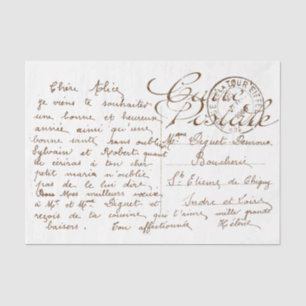 Chère Alice
je viens te souhaiter
une bonne et heureuse
année ainsi qu'une
bonne santé sans oublier
Sylvain et Robert quand
tu écriras à ton cher
petit mari n'oublie
pas de le lui dire
Mes meilleurs vœux
à Mr et Mme Diguet et
reçois de ta cousine qui t'aime mille grands
baisers. Ton affectionnée Hélène
Carte
Postale
LA TOUR EIFFEL
Mme Diguet-
Boucherie
St Etienne de Chigny
Indre et Loire